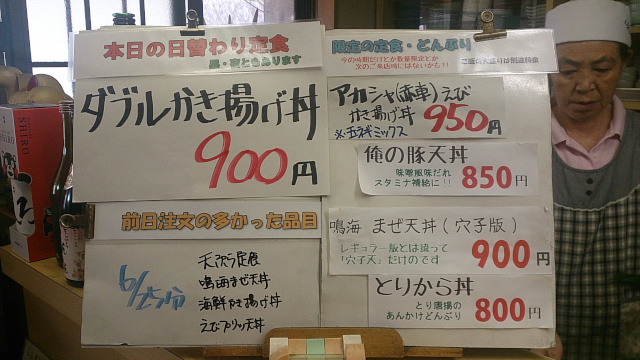 本日の日替わり定食
昼・夜ともあります
ダブルかき揚げ丼
900円
前日注文の多かった品目
6/25分
天ぷら定食
鳴海まぜ天丼
海鮮かき揚げ丼
えびブリッ天丼
限定の定食・どんぶり
今の時期だけとか数量限定とか
次のご来店時にはないかも!!
ご飯の大盛りは別途料金
アカシャ(赤車)えび
かき揚げ丼 950円
※玉ネギミックス
俺の豚天丼
味噌風味だれ
スタミナ補給に!! 850円
鳴海 まぜ天丼(穴子版)
レギュラー版とは違って
「穴子天」だけのです
900円
とりから丼
とり唐揚の
あんかけどんぶり
800円
SHIRO